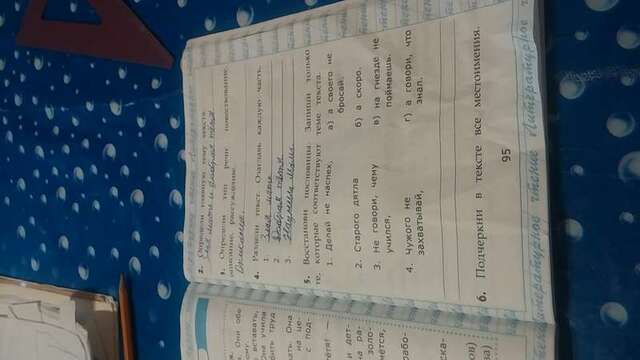 Они обе
вставать,
Она учила
бить труд
на це-
с под-
тётя! —
и дет-
на ра-
золо-
рабо-
ска-
2. Определи главную тему текста.
Злая мать и добрая тётя
3. Определи тип речи: повествование,
описание, рассуждение.
Описание.
4. Раздели текст. Озаглавь каждую часть.
1. Злая мать
2. Добрая тётя
3.
5. Восстанови пословицы. Запиши только
те, которые соответствуют теме текста.
1. Делай не наспех, а) а своего не
бросай.
2. Старого дятла б) а скоро.
3. Не говори, чему в) на гнезде не
учился, поймаешь.
4. Чужого не г) а говори, что
захватывай, знал.
6. Подчеркни в тексте все местоимения.
95
Литературное чтение Литературное